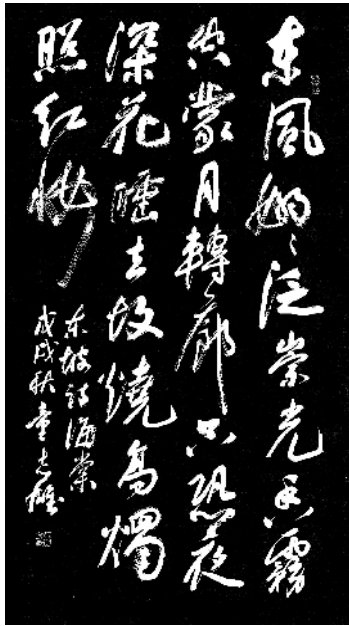 東風嫋々泛崇光香霧
空蒙月轉廊只恐夜
深花睡去故燒高燭
照紅妝
東坡詩海棠
戊戌秋童